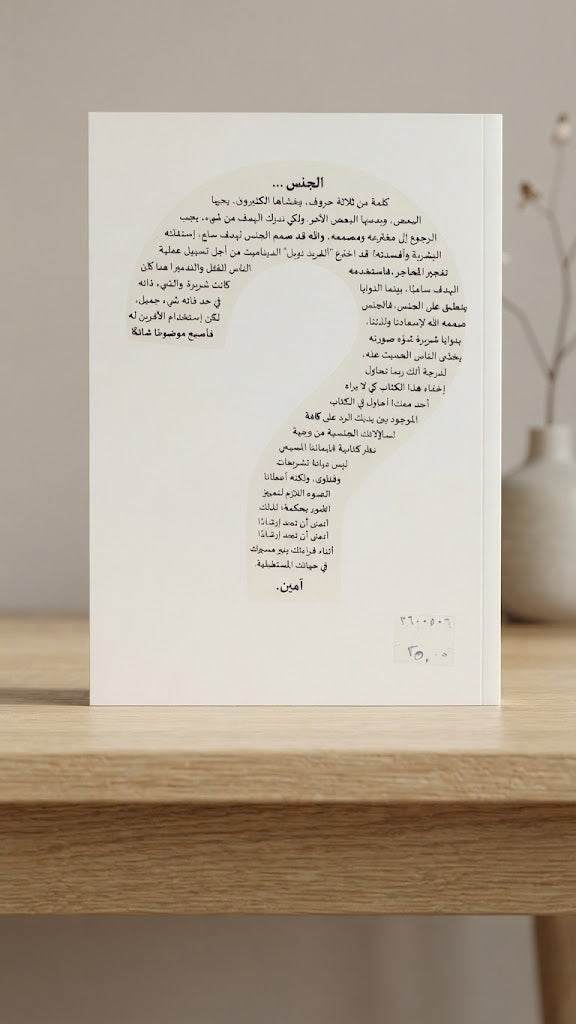 الجنس ...
كلمة من ثلاثة حروف، يخشاها الكثيرون، يحبها
البعض، ويدمنها البعض الآخر. ولكي ندرك الهدف من شيء، يجب
الرجوع إلى مخترعه ومصممه، والله قد صمم الجنس لهدف سامٍ، إستغلته
البشرية وأفسدته! قد اخترع "ألفريد نوبل" الديناميت من أجل تسهيل عملية
تفجير المحاجر، فاستخدمه الناس للقتل والتدمير! هنا كان
الهدف ساميًا، بينما النوايا كانت شريرة، والشيء ذاته
ينطبق على الجنس، فالجنس في حد ذاته شيء جميل،
صممه الله لإسعادنا ولذتنا، لكن إستخدام الآخرين له
بنوايا شريرة شوّه صورته فأصبح موضوعًا شائكًا
يخشى الناس الحديث عنه،
لدرجة أنك ربما تحاول
إخفاء هذا الكتاب كي لا يراه
أحد معك! أحاول في الكتاب
الموجود بين يديك الرد على كافة
الجنسية من وجهة
نظر كتابية المسيحي
ليس ديانة تشريعات
وفتاوى، ولكنه أعطانا
الضوء اللازم لتمييز
الأمور بحكمة؛ لذلك
أتمنى أن تجد إرشادًا
أتمنى أن تجد إرشادًا
أثناء قراءتك ينير مسيرتك
في حياتك المستقبلية.
آمين.
٢٦٠٠٥٠٦
٢٥,٠٠